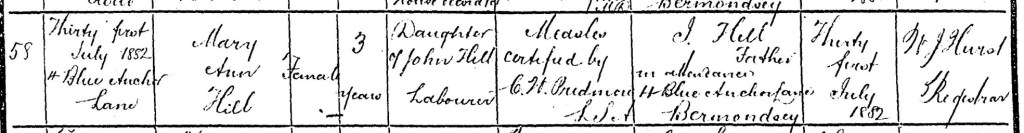 58
Thirty first
July 1882
4 Blue Anchor
Lane
Mary
Ann
Hill
Female
3
years
Daughter
of John Hill
Labourer
Measles
certified by
L.S.A
J. Hill
Father
in attendance
4 Blue Anchor Lane
Bermondsey
Thirty
first
July
1882
W J Hurst
Registrar
Bermondsey